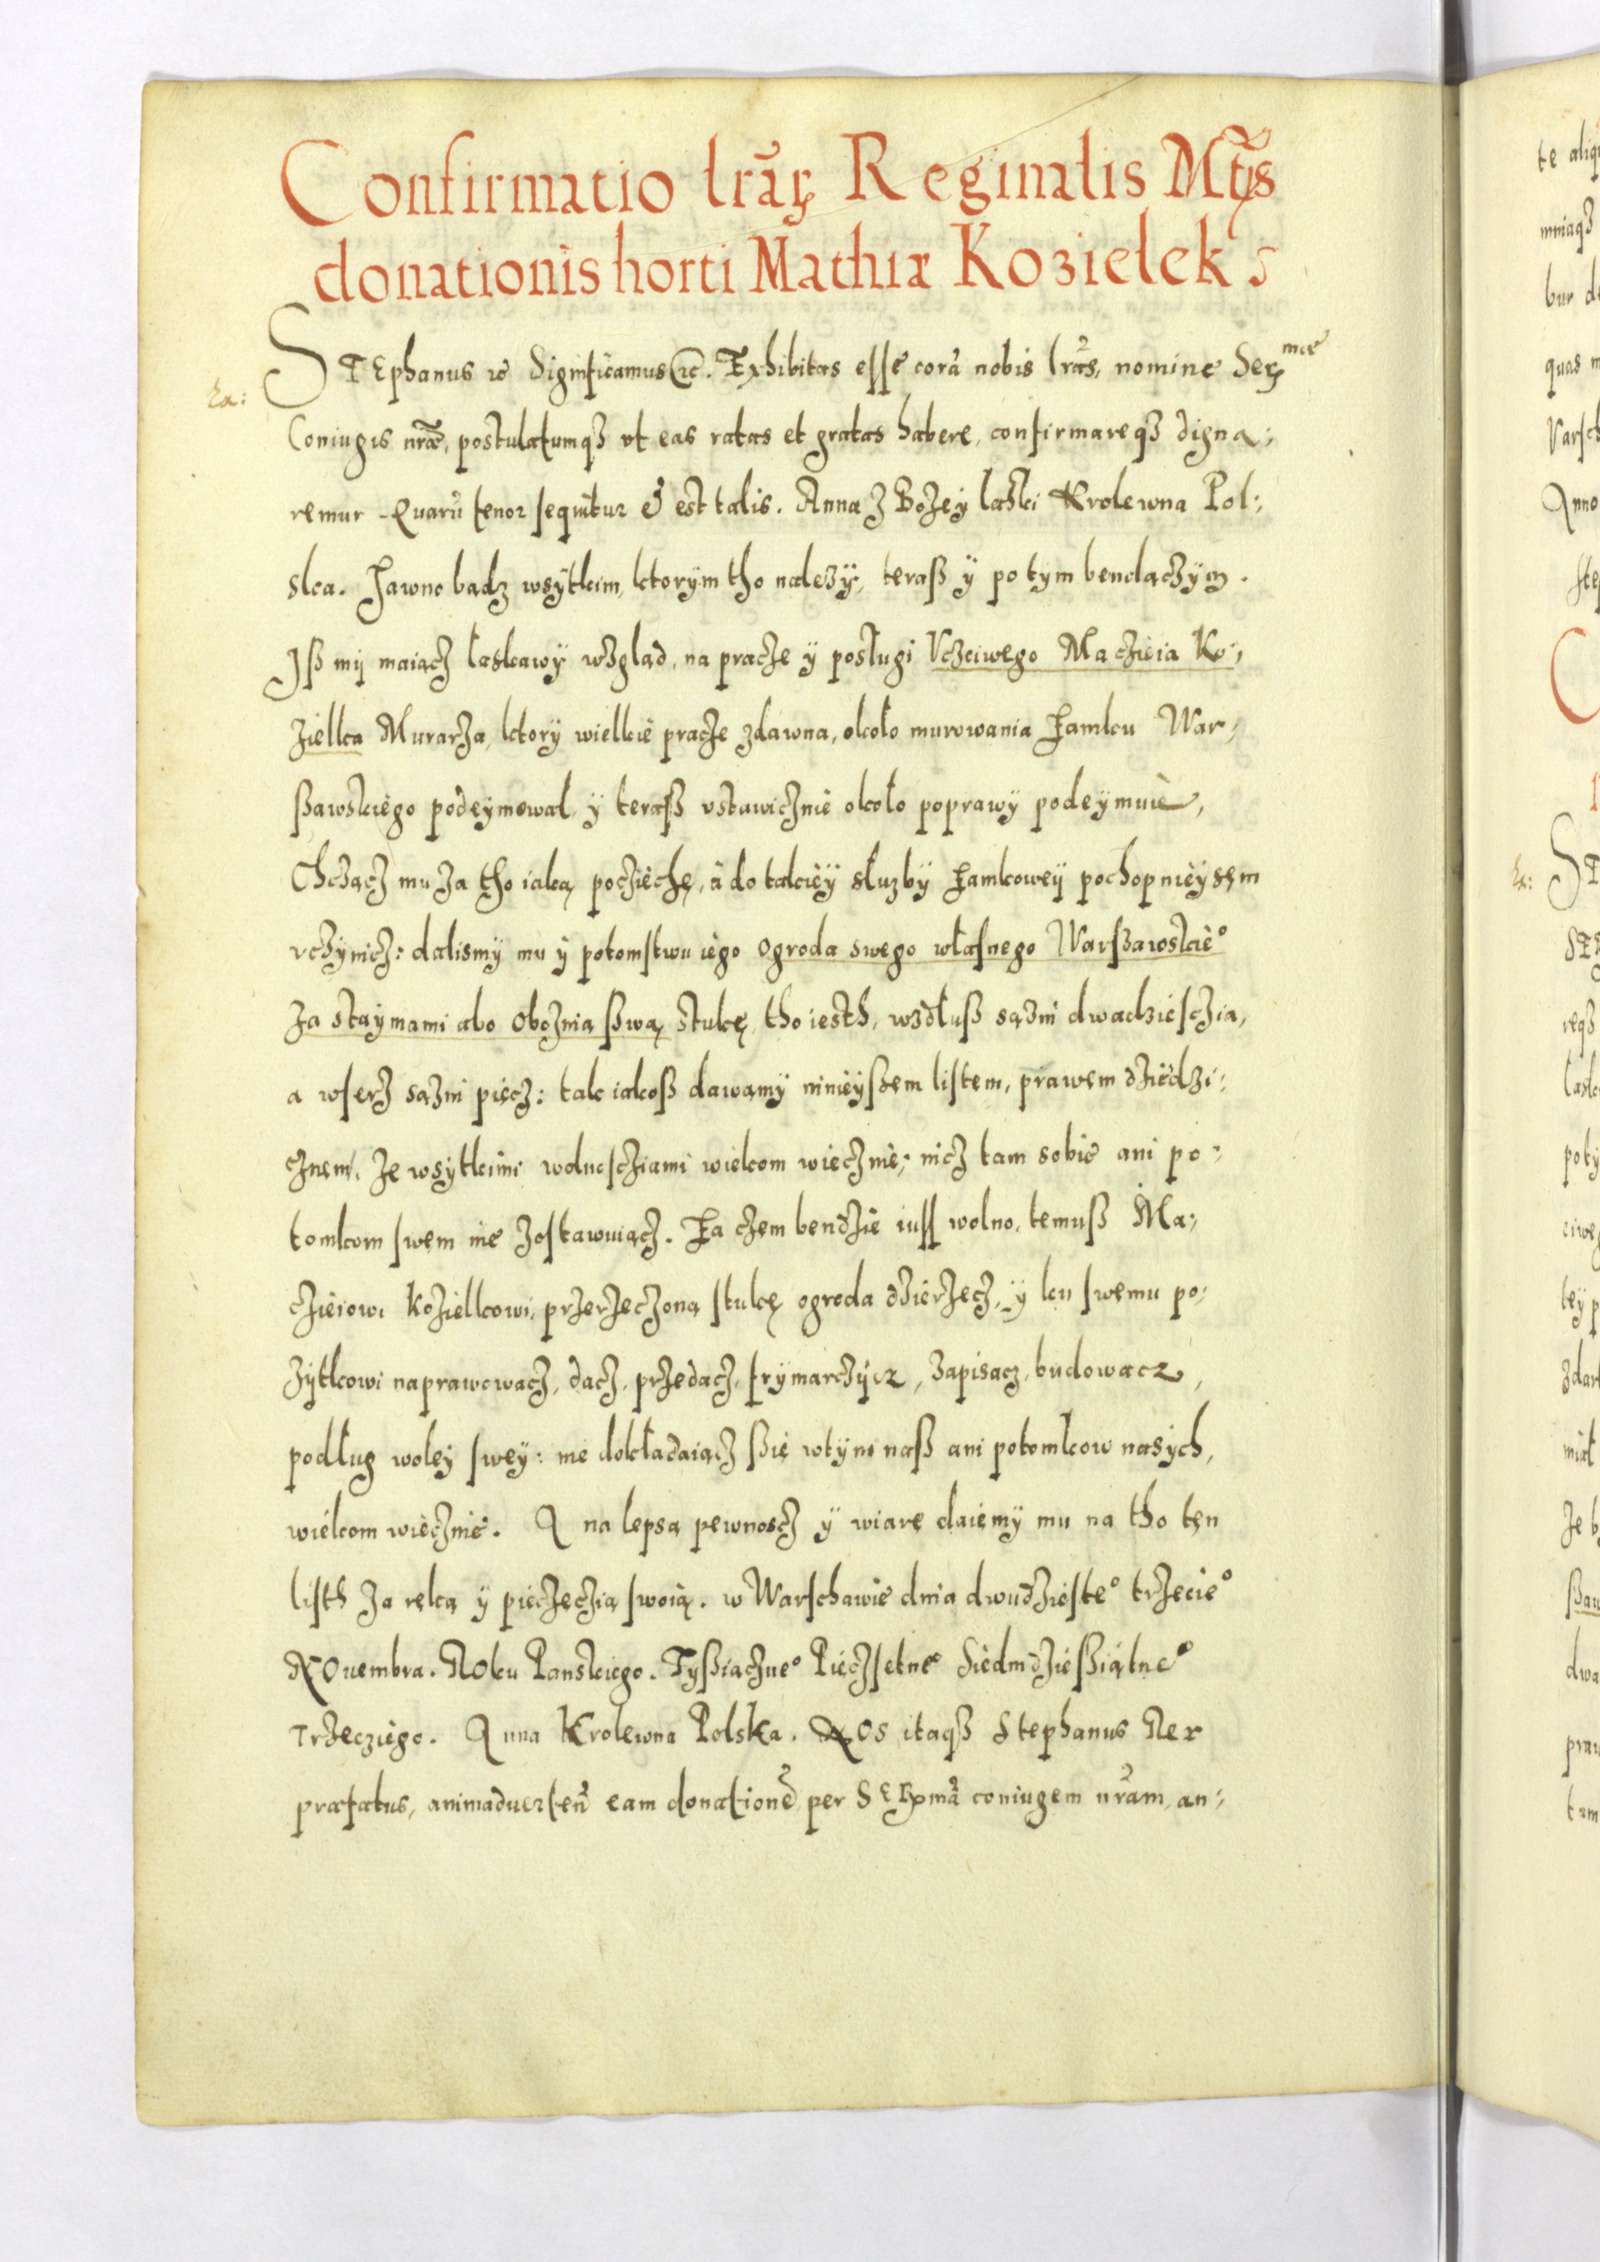 Confirmatio lrãꝝ Reginalis Mt̃is
donationis horti Mathiæ Kozielek
STEphanus ꝛc Significamus ꝛc. Exhibitas esse corã nobis lrãs, nomine Serꝫ mæ
Coniugis nr̃æ, postulatumqꝫ vt eas ratas et gratas habere, confirmareqꝫ digna:
remur Quarũ tenor sequitur & est talis. Anna z Bożey łaski Krolewna Pol:
ska. Jawno bądz wsÿtkim, ktorÿm tho należÿ, teraß ÿ po tym bendączÿm.
Iß mÿ maiącz łaskawÿ wzgląd, na pracże ÿ posługi Vczciwego Maczieia Ko:
zielka Murarza, ktorÿ wielkie pracże zdawna, około murowania Zamku War:
ßawskiego podeÿmował, ÿ teraß vstawicznie około poprawÿ podeÿmuie,
Chcząćz mu za tho iaką pocziechę, à do takieÿ służbÿ Zamkoweÿ pochopnieÿsem
vczÿnicz: dalismÿ mu ÿ potomstwu iego ogroda swego własnego Warßawskie°
Za staÿmami abo Obożnią ßwą stukę, tho iesth, wzdłuß sązni dwadziesczia,
a wserz sązni piecz: tak iakoß dawamÿ ninieÿßem listem, prawem dziedzi:
cznem, ze wsÿtkimi wolnoscziami wiekom wiecznie; nicz tam sobie ani po:
tomkom swem nie zostawuiącz. Za czem bendzie iuss wolno, temuß Ma:
cziejowi Kozielkowi, przerzeczoną stukę ogroda dzierzecz, ÿ ku swemu po:
żÿtkowi naprawowacz, dacz, przedacz, frymarczÿcz, zapisacz, budowacz,
podług woleÿ sweÿ: nie dokładaiącz ßię wtÿm naß ani potomkow nasÿch,
wiekom wiecznie. A na lepsą pewnoscz ÿ wiarę daiemÿ mu na tho ten
listh za ręką ÿ pieczęczią swoią. w Warschawie dnia dwudzieste° trzecie°
NOuembra. ROku Panskiego. Tÿßiączne° Pieczsetne° Siedmdzießiątne°
Trzecziego. Anna Krolewna Polska. NOs itaqꝫ Stephanus Rex
præfatus, animaduerten̄ eam donationē per SERꝫmã coniugem nr̃am, an: